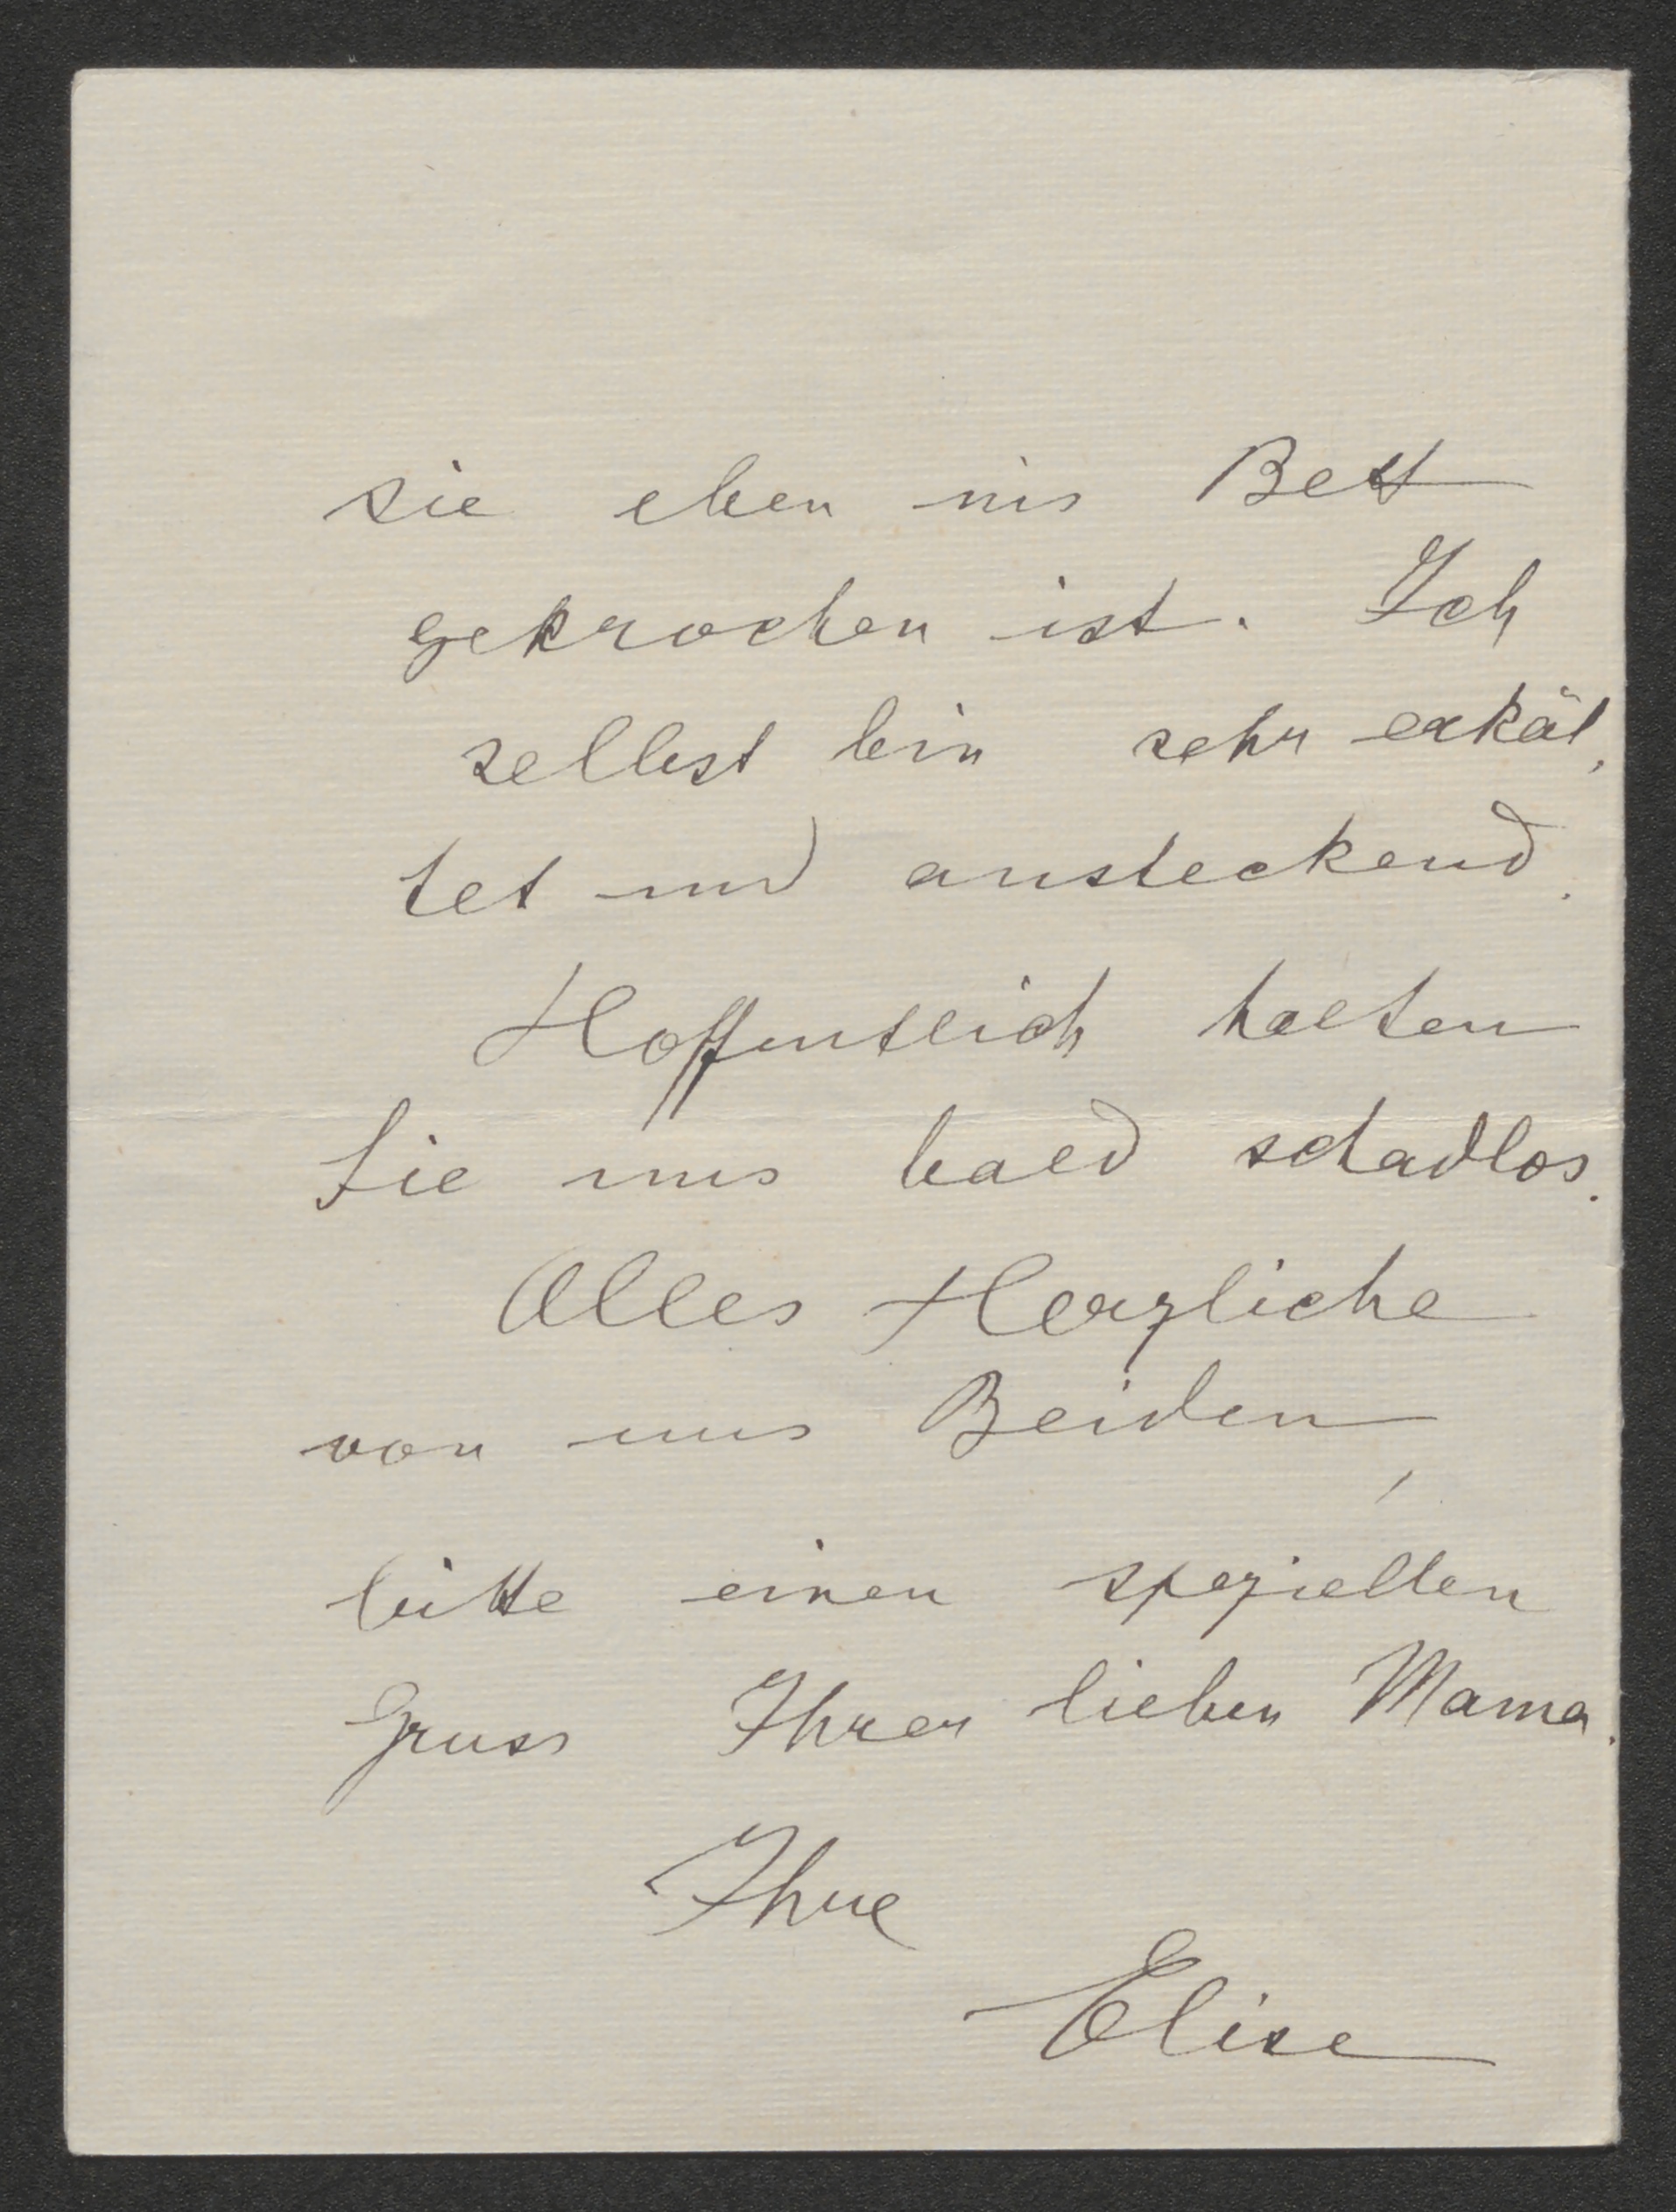 sie eben ins Bett
gekrochen ist. Ich
selbst bin sehr erkäl,
tet und ansteckend.
Hoffentlich halten
Sie uns bald schadlos.
Alles Herzliche
von uns Beiden,
bitte einen speziellen
Gruss Ihrer lieben Mama.
Ihre
Elise